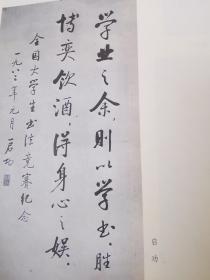 学业之余，则以学书，胜
博奕饮酒，得身心之娱，
全国大学生书法竞赛纪念
一九八二年元月 启功
启功